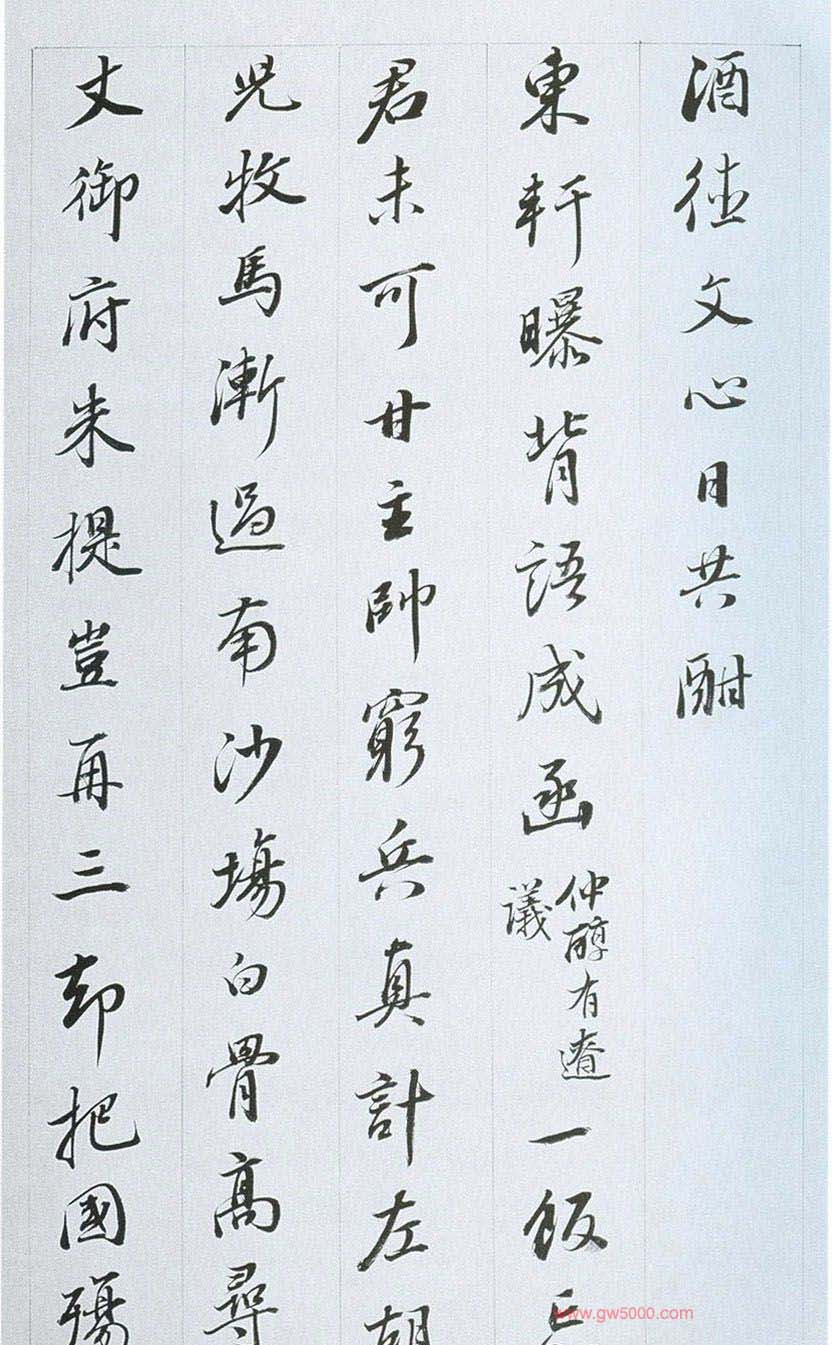 酒德文心日共酣
東軒曝背語成函
仲醇有遼
議
一飯
君未可甘主帥窮兵真計左胡
兒牧馬漸過南沙場白骨高尋
丈御府朱提豈再三却把國殤
www.gw5000.com